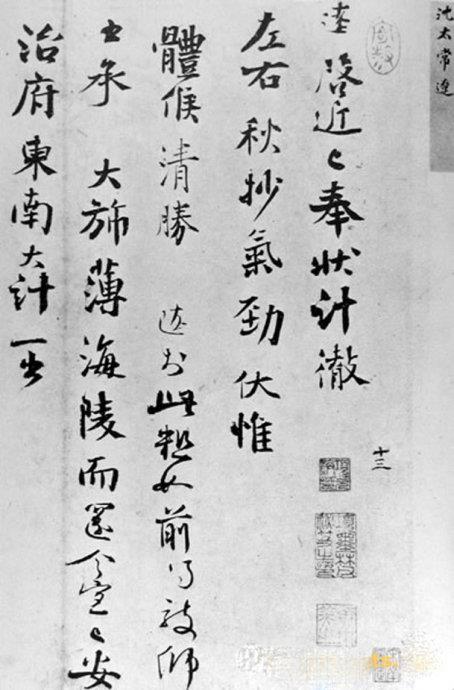 沈太常遼
遼啓近々奉狀計徹
左右秋杪氣勁伏惟
體候清勝 遼於此粗如前得 師
書承 大旆薄海陵而還 安
治府東南大計一出
十三